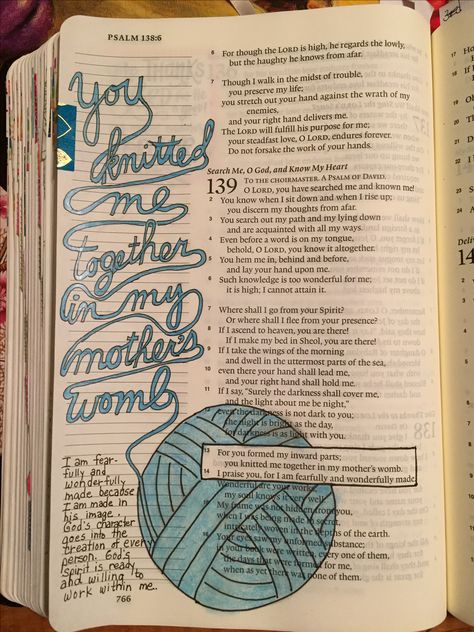 PSALM 138:6
You
knitted
me
together
in my
mother's
womb
I am fear-
fully and
wonderfully
made because
I am made in
his image..
God's character
goes into the
creation of every
person. God's
spirit is ready
and willing to
work within me..
766
6 For though the LORD is high, he regards the lowly,
but the haughty he knows from afar.
7 Though I walk in the midst of trouble,
you preserve my life;
you stretch out your hand against the wrath of my
enemies,
and your right hand delivers me.
8 The LORD will fulfill his purpose for me;
your steadfast love, O LORD, endures forever.
Do not forsake the work of your hands.
Search Me, O God, and Know My Heart
139 TO THE CHOIRMASTER. A PSALM OF DAVID.
O LORD, you have searched me and known me!
2 You know when I sit down and when I rise up;
you discern my thoughts from afar.
3 You search out my path and my lying down
and are acquainted with all my ways.
4 Even before a word is on my tongue,
behold, O LORD, you know it altogether.
5 You hem me in, behind and before,
and lay your hand upon me.
6 Such knowledge is too wonderful for me;
it is high; I cannot attain it.
7 Where shall I go from your Spirit?
Or where shall I flee from your presence?
8 If I ascend to heaven, you are there!
If I make my bed in Sheol, you are there!
9 If I take the wings of the morning
and dwell in the uttermost parts of the sea,
10 even there your hand shall lead me,
and your right hand shall hold me.
11 If I say, "Surely the darkness shall cover me,
and the light about me be night,"
12 even the darkness is not dark to you;
the night is bright as the day,
for darkness is as light with you.
13 For you formed my inward parts;
you knitted me together in my mother's womb.
14 I praise you, for I am fearfully and wonderfully made.
Wonderful are your works;
my soul knows it very well.
15 My frame was not hidden from you,
when I was being made in secret,
intricately woven in the depths of the earth.
16 Your eyes saw my unformed substance;
in your book were written, every one of them,
the days that were formed for me,
when as yet there was none of them.